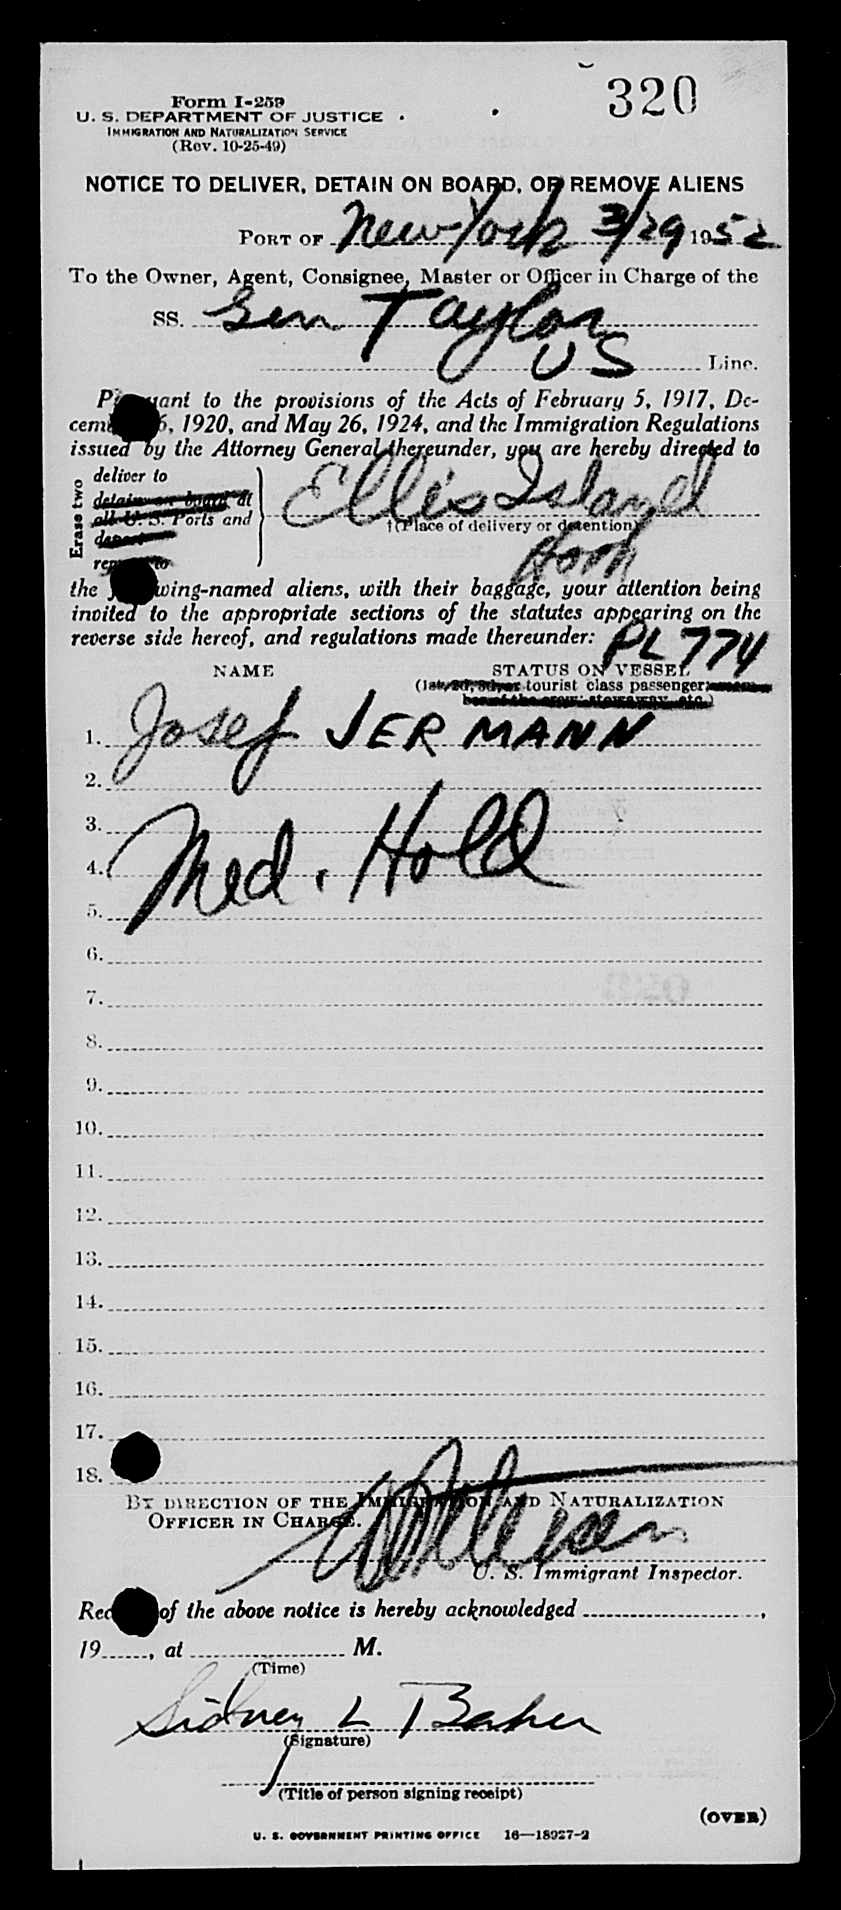 320
Form I-259
U. S. DEPARTMENT OF JUSTICE
IMMIGRATION AND NATURALIZATION SERVICE
(Rev. 10-25-49)
NOTICE TO DELIVER, DETAIN ON BOARD, OR REMOVE ALIENS
PORT OF New York 3/29 1952
To the Owner, Agent, Consignee, Master or Officer in Charge of the
SS. Gen Taylor
US Line.
Pursuant to the provisions of the Acts of February 5, 1917, De-
cember 26, 1920, and May 26, 1924, and the Immigration Regulations
issued by the Attorney General thereunder, you are hereby directed to
Erase two
deliver to
detain on board at
all U. S. Ports and
deport
remove to
Ellis Island
†(Place of delivery or detention)
the following-named aliens, with their baggage, your attention being
invited to the appropriate sections of the statutes appearing on the
reverse side hereof, and regulations made thereunder:
PL 774
NAME STATUS ON VESSEL
(1st, 2d, tourist class passenger;
1. Josef JERMANN
2.
3.
4. Med. Hold
5.
6.
7.
8.
9.
10.
11.
12.
13.
14.
15.
16.
17.
18.
BY DIRECTION OF THE IMMIGRATION AND NATURALIZATION
OFFICER IN CHARGE.
U. S. Immigrant Inspector.
Receipt of the above notice is hereby acknowledged ,
19 , at M.
(Time)
Sidney L Baker
(Signature)
(Title of person signing receipt)
(OVER)
U. S. GOVERNMENT PRINTING OFFICE 16—18927-2